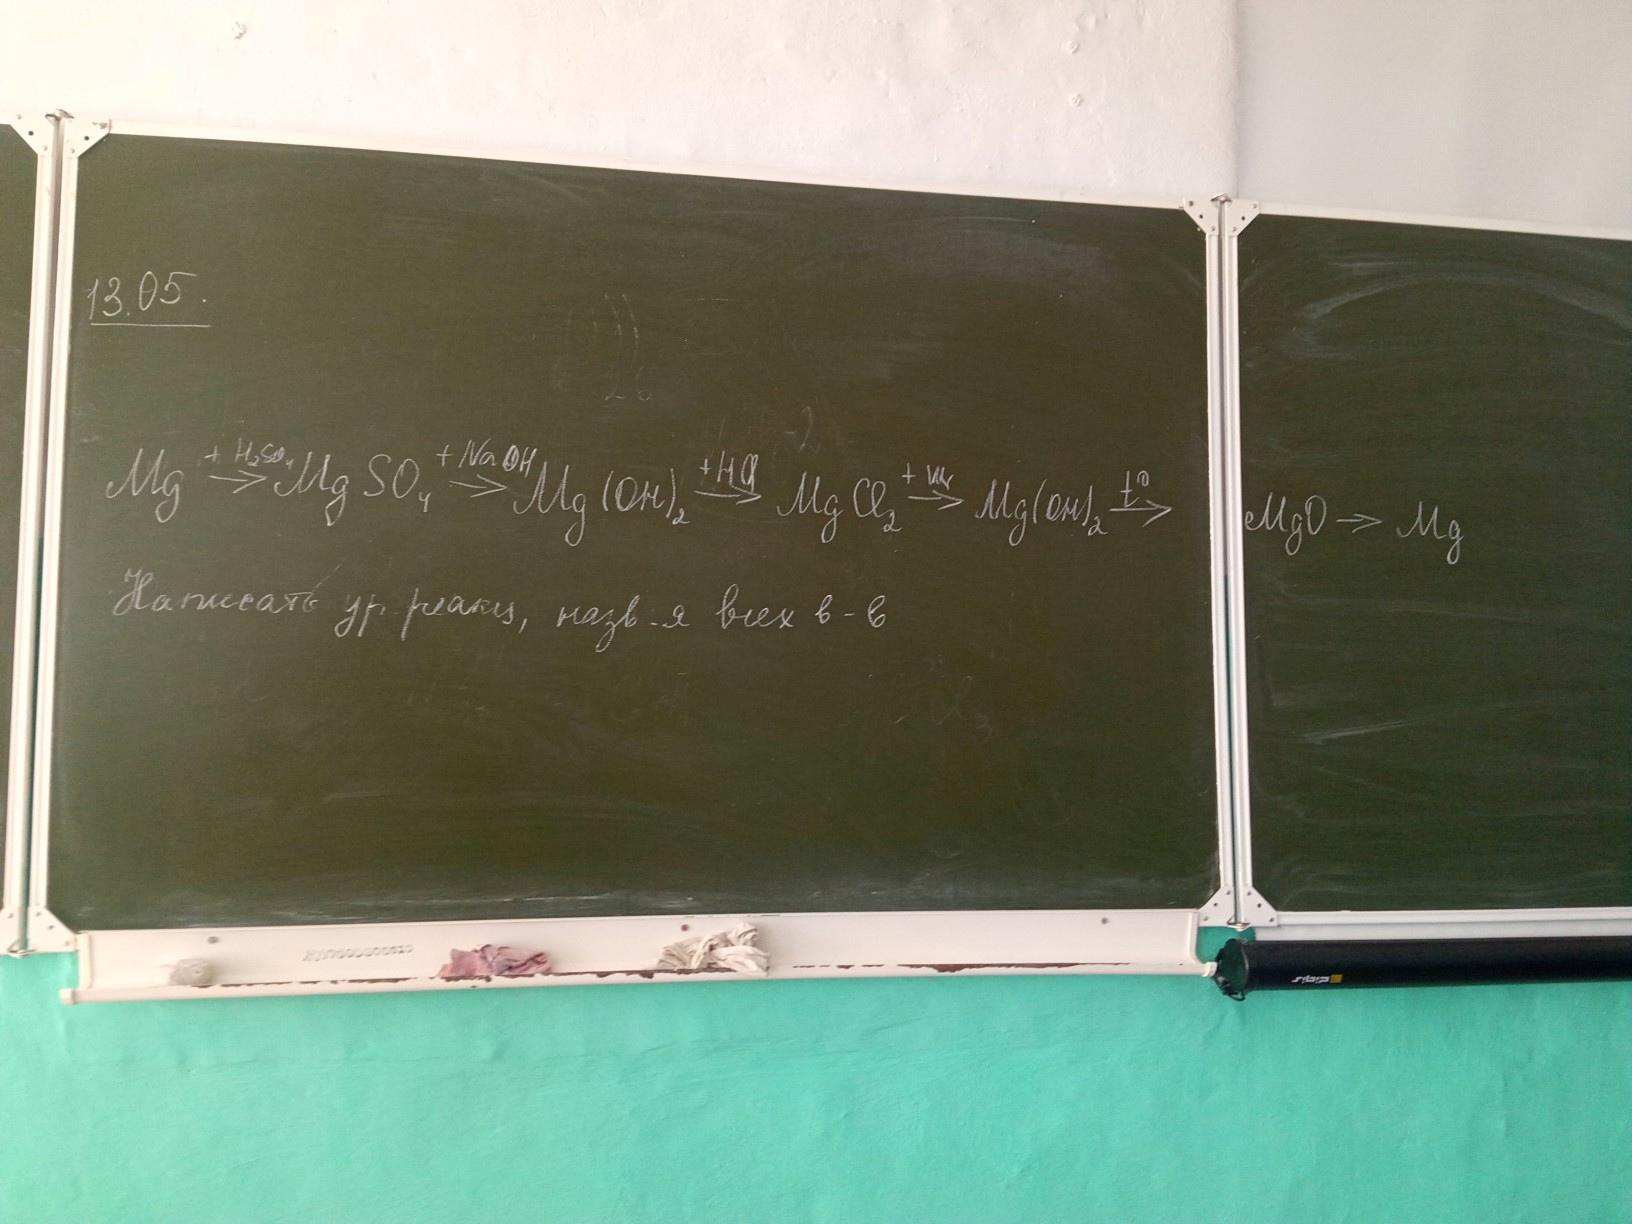 13.05.
Mg + H₂SO₄ → MgSO₄ + NaOH → Mg(OH)₂ + HCl → MgCl₂ + щел → Mg(OH)₂ t° → MgO → Mg
Написать ур. реакц, назв-я всех в-в